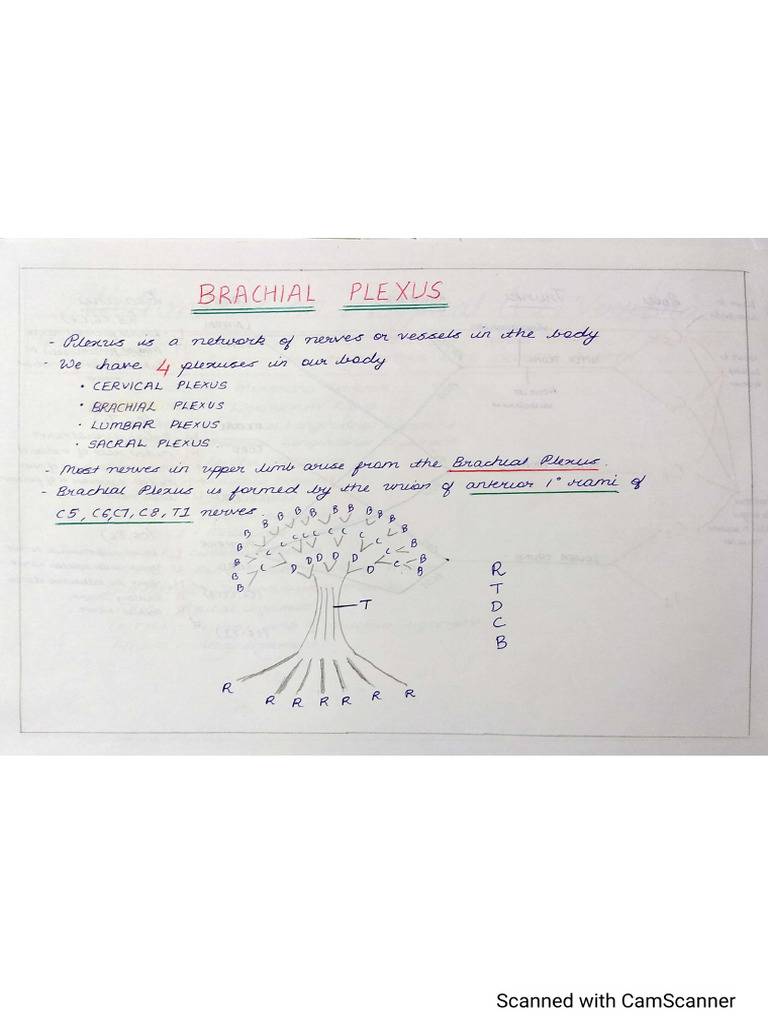 BRACHIAL PLEXUS
- Plexus is a network of nerves or vessels in the body
- We have 4 plexuses in our body
• CERVICAL PLEXUS
• BRACHIAL PLEXUS
• LUMBAR PLEXUS
• SACRAL PLEXUS.
- Most nerves in upper limb arise from the Brachial Plexus.
- Brachial Plexus is formed by the union of anterior 1° rami of
C5, C6, C7, C8, T1 nerves.
B B B B B B B B B B
B C C C C C C C C B
B C D D D D D D C B
B B
T
R R R R R R R
R
T
D
C
B
Scanned with CamScanner